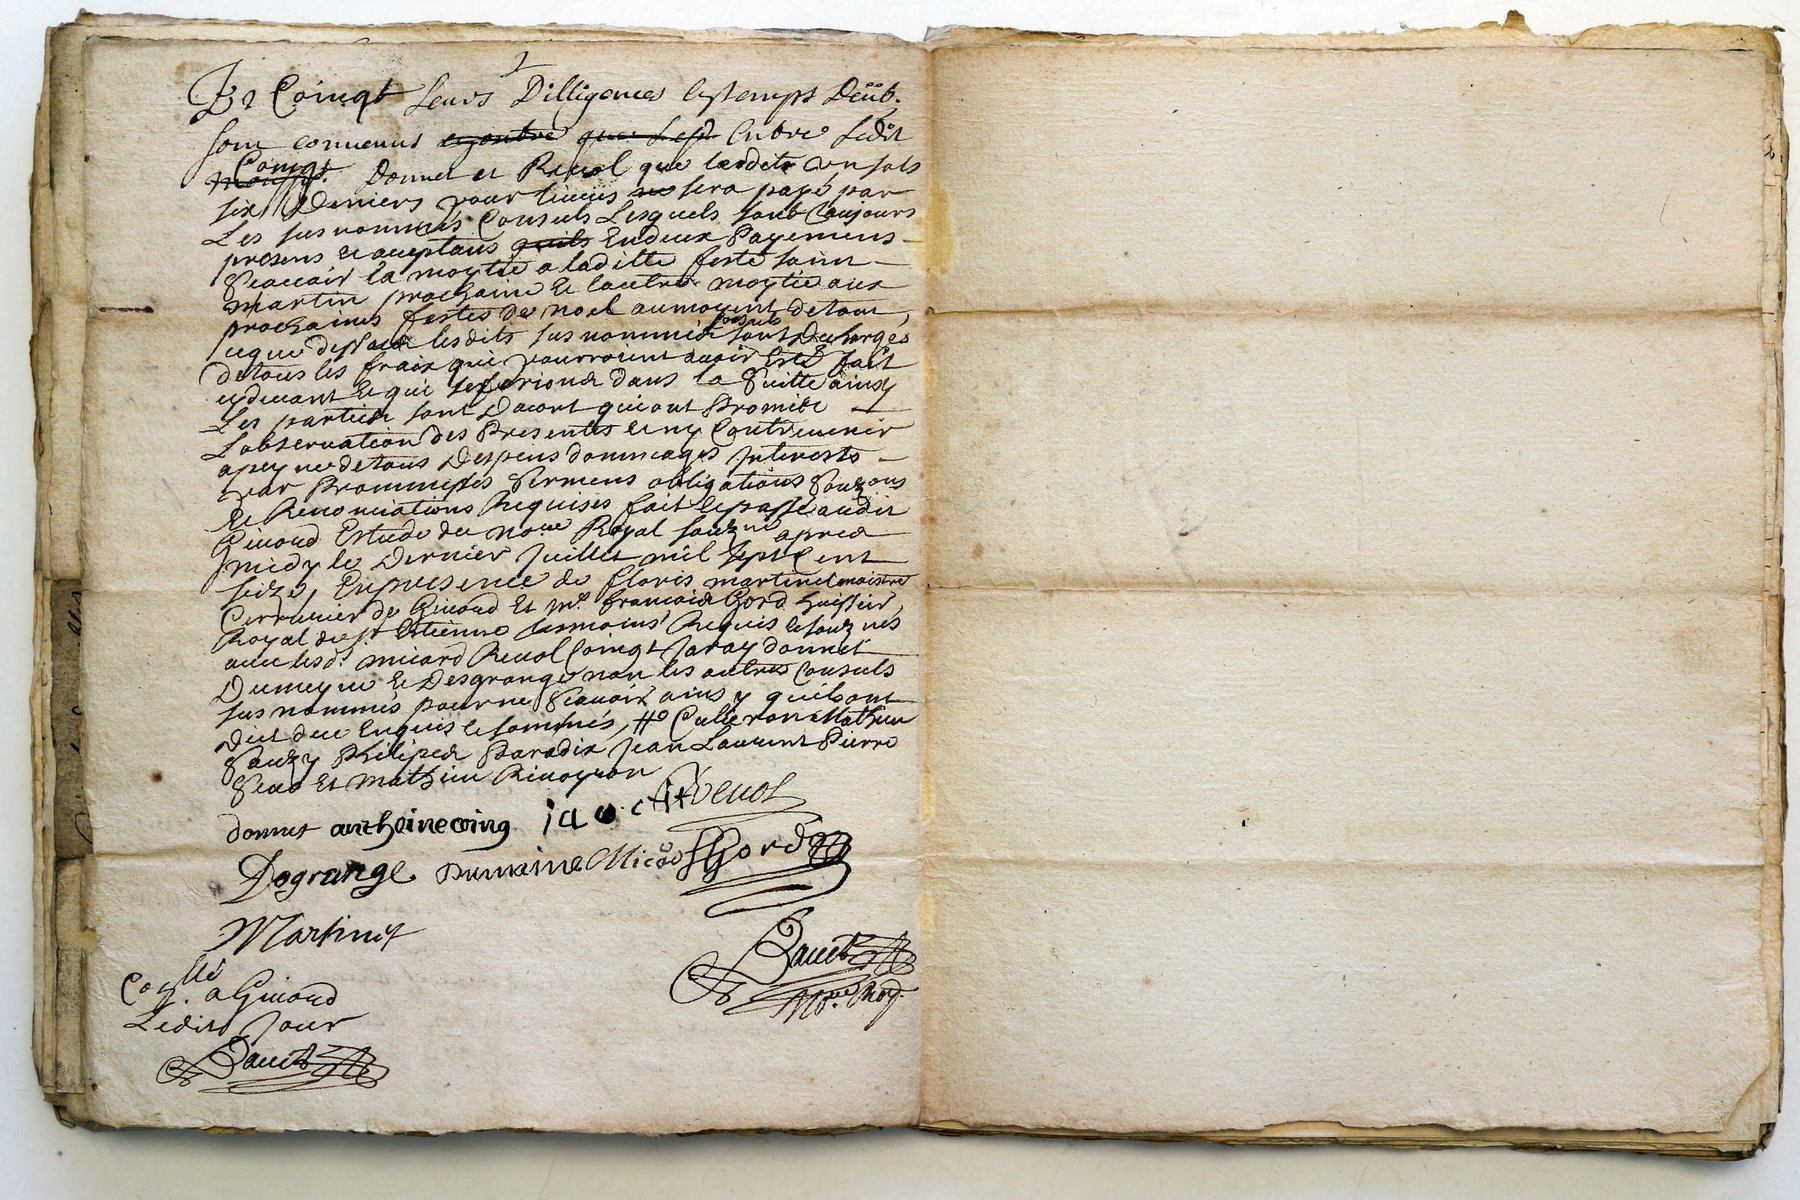 Et Coingt leurs Dilligences lestemps Deüb.
sont convenus Entre ledit
Coingt Donnet et Revol que lardete un sols
six Deniers pour livres sera payé par
Les susnommés Consuls Lesquels sont toujours
presens et aceptans Endeux Payemens
Scavoir la moytié a laditte feste saint
martin prochaine et lautre moytié aux
prochaines festes de noel aumoyent detout
ceque dessus lesdits susnommés consuls sont Decharges
detous les fraix qui pourroient avoir Esté fait
cydevant et qui se feriont dans la Suitte ainsy
Les parties sont Dacort qui ont Promise
Lobservation des Presentes et ny Contrevenir
apeyne detous Despens dommages Interests
par Prommesses Sermens obligations Souzons
Et Renonciations Requises fait et passé audit
Givord Estude du no.re Royal souz.né apres
midy le Dernier Juillet mil sept Cent
seize, Enpresence de floris martinet maistre
Cerrurier de Givord Et m.e francois Gord huissier
Royal de s.t Estienne tesmoins Requis et souz.nés
avec lesd. micard Revol Coingt Jaray donnet
Dumeyne et Desgrange non les autres Consuls
susnommés pour ne Scavoir ainsy quils ont
dit de ce Enquis et sommés, Culleron Mathieu
Philipes Paradix Jean Laurent Pierre
Et mathieu Rivoyron
donnet anthoine coing Revol
Degrange Dumaine Micad Gord
Martinet
Co.llé
a Givord
Ledit Jour
No.re Roy.